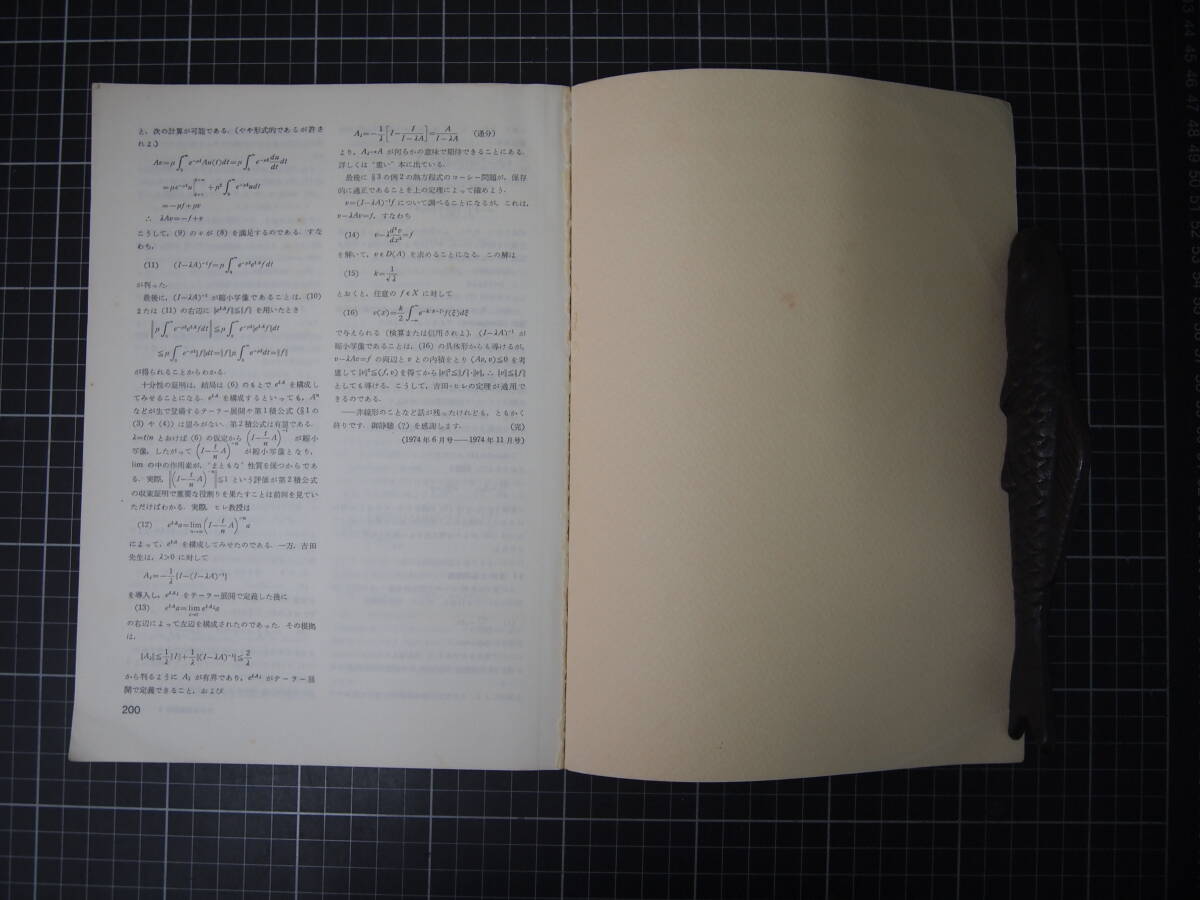 と，次の計算が可能である．（やや形式的であるが許さ
れよ）
Av=μ∫₀^∞ e^{-μt}Au(t)dt=μ∫₀^∞ e^{-μt}du/dt dt
=μe^{-μt}u|_{t=0}^{t=∞}+μ²∫₀^∞ e^{-μt}udt
=-μf+μv
∴ λAv=-f+v
こうして，(9) の v が (8) を満足するのである．すな
わち，
(11) (I-λA)^{-1}f=μ∫₀^∞ e^{-μt}e^{tA}fdt
が判った．
最後に，(I-λA)^{-1} が縮小写像であることは，(10)
または (11) の右辺に ‖e^{tA}f‖≦‖f‖ を用いたとき
‖μ∫₀^∞ e^{-μt}e^{tA}fdt‖≦μ∫₀^∞ e^{-μt}‖e^{tA}f‖dt
≦μ∫₀^∞ e^{-μt}‖f‖dt=‖f‖μ∫₀^∞ e^{-μt}dt=‖f‖
が得られることからわかる．
十分性の証明は，結局は (6) のもとで e^{tA} を構成し
てみせることになる．e^{tA} を構成するといっても，Aⁿ
などが生で登場するテーラー展開や第1積公式（§1の
(3) や (4)）は望みがない．第2積公式は有望である．
λ=t/n とおけば (6) の仮定から (I-t/n A)^{-1} が縮小
写像，したがって (I-t/n A)^{-n} が縮小写像となり，
lim の中の作用素が，“まともな” 性質を保つからであ
る．実際，‖(I-t/n A)^{-n}‖≦1 という評価が第2積公式
の収束証明で重要な役割りを果たすことは前回を見てい
ただけばわかる．実際，ヒレ教授は
(12) e^{tA}a=lim_{n→∞}(I-t/n A)^{-n}a
によって，e^{tA} を構成してみせたのである．一方，吉田
先生は，λ>0 に対して
A_λ=-1/λ{I-(I-λA)^{-1}}
を導入し，e^{tA_λ} をテーラー展開で定義した後に
(13) e^{tA}a=lim_{λ→0} e^{tA_λ}a
の右辺によって左辺を構成されたのであった．その根拠
は，
‖A_λ‖≦1/λ‖I‖+1/λ‖(I-λA)^{-1}‖≦2/λ
から判るように A_λ が有界であり，e^{tA_λ} がテーラー展
開で定義できること，および
200
A_λ=-1/λ[I-I/(I-λA)]=A/(I-λA) （通分）
より，A_λ→A が何らかの意味で期待できることにある．
詳しくは “重い” 本に出ている．
最後に §3 の例2の熱方程式のコーシー問題が，保存
的に適正であることを上の定理によって確めよう．
v=(I-λA)^{-1}f について調べることになるが，これは，
v-λAv=f，すなわち
(14) v-λd²v/dx²=f
を解いて，v∈D(A) を求めることになる．この解は
(15) k=1/√λ
とおくと，任意の f∈X に対して
(16) v(x)=k/2∫_{-∞}^∞ e^{-k|x-ξ|}f(ξ)dξ
で与えられる（検算または信用されよ）．(I-λA)^{-1} が
縮小写像であることは，(16) の具体形からも導けるが，
v-λAv=f の両辺と v との内積をとり (Av, v)≦0 を考
慮して ‖v‖²≦(f, v) を得てから ‖v‖²≦‖f‖·‖v‖，∴ ‖v‖≦‖f‖
としても導ける．こうして，吉田・ヒレの定理が適用で
きるのである．
——非線形のことなど話が残ったけれども，ともかく
終りです．御静聴（？）を感謝します．（完）
（1974年6月号——1974年11月号）